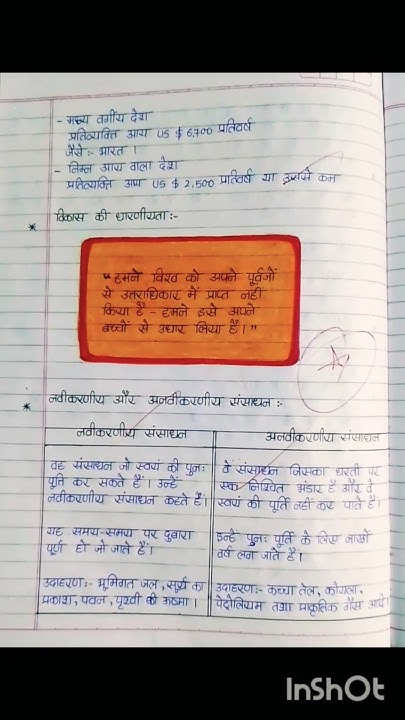 - मध्य वर्गीय देश
प्रतिव्यक्ति आय US $ 6,700 प्रतिवर्ष
जैसे:- भारत ।
- निम्न आय वाला देश
प्रतिव्यक्ति आय US $ 2,500 प्रतिवर्ष या उससे कम
* विकास की धारणीयता:-
“हमने विश्व को अपने पूर्वजों
से उत्तराधिकार में प्राप्त नहीं
किया है - हमने इसे अपने
बच्चों से उधार लिया है।”
* नवीकरणीय और अनवीकरणीय संसाधन:-
नवीकरणीय संसाधन
वह संसाधन जो स्वयं की पुनः
पूर्ति कर सकते हैं। उन्हें
नवीकरणीय संसाधन कहते हैं।
यह समय-समय पर दुबारा
पूर्ण हो जाते हैं।
उदाहरण:- भूमिगत जल, सूर्य का
प्रकाश, पवन, पृथ्वी की ऊष्मा ।
अनवीकरणीय संसाधन
वे संसाधन जिसका धरती पर
एक निश्चित भंडार है और वे
स्वयं की पूर्ति नहीं कर पाते हैं।
इन्हें पुनः पूर्ति के लिए लाखों
वर्ष लग जाते हैं।
उदाहरण:- कच्चा तेल, कोयला,
पेट्रोलियम तथा प्राकृतिक गैस आदि।
InShOt